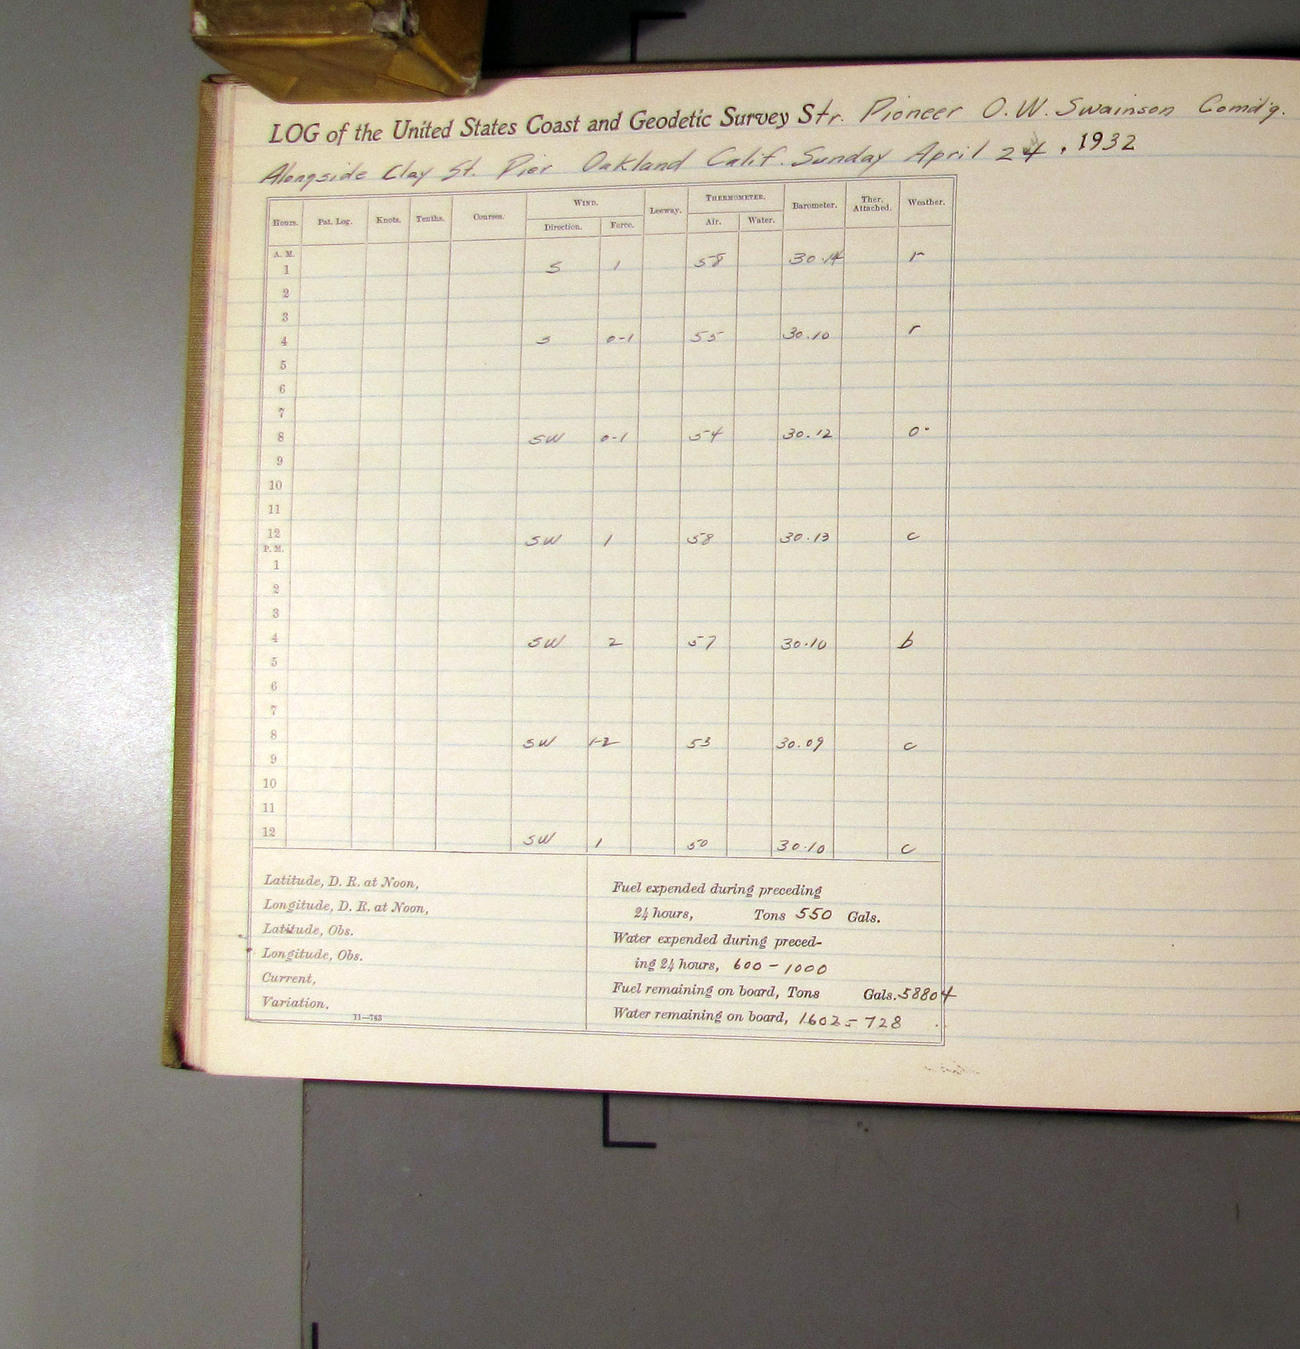 LOG of the United States Coast and Geodetic Survey Str. Pioneer O.W. Swainson Comd'g.
Alongside Clay St. Pier Oakland Calif. Sunday April 24, 1932
Hours. Pat. Log. Knots. Tenths. Courses. WIND. Direction. Force. Leeway. THERMOMETER. Air. Water. Barometer. Ther. Attached. Weather.
A. M.
1 S 1 58 30.14 r
2
3
4 S 0-1 55 30.10 r
5
6
7
8 SW 0-1 54 30.12 o
9
10
11
12 SW 1 58 30.13 c
P. M.
1
2
3
4 SW 2 57 30.10 b
5
6
7
8 SW 1-2 53 30.09 c
9
10
11
12 SW 1 50 30.10 c
Latitude, D. R. at Noon,
Longitude, D. R. at Noon,
Latitude, Obs.
Longitude, Obs.
Current,
Variation,
11—763
Fuel expended during preceding
24 hours, Tons 550 Gals.
Water expended during preced-
ing 24 hours, 600 - 1000
Fuel remaining on board, Tons Gals. 58804
Water remaining on board, 1602 - 728